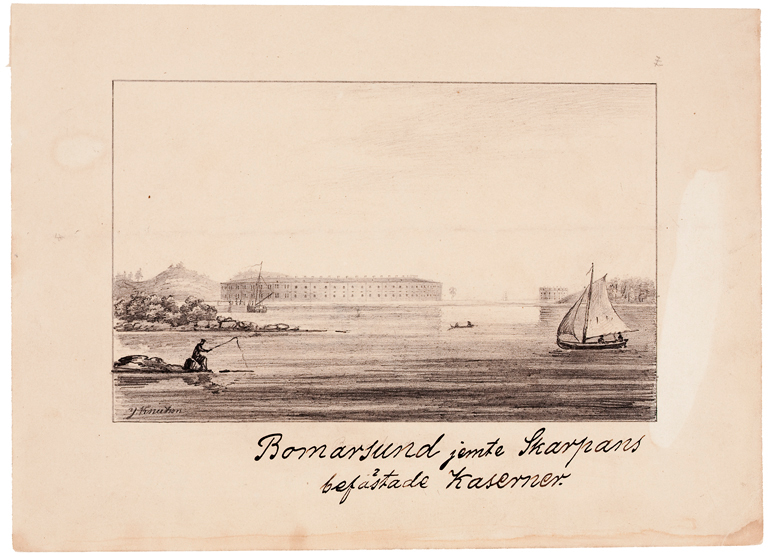 J Knutson
Bomarsund jemte Skarpans
befästade Kaserner.